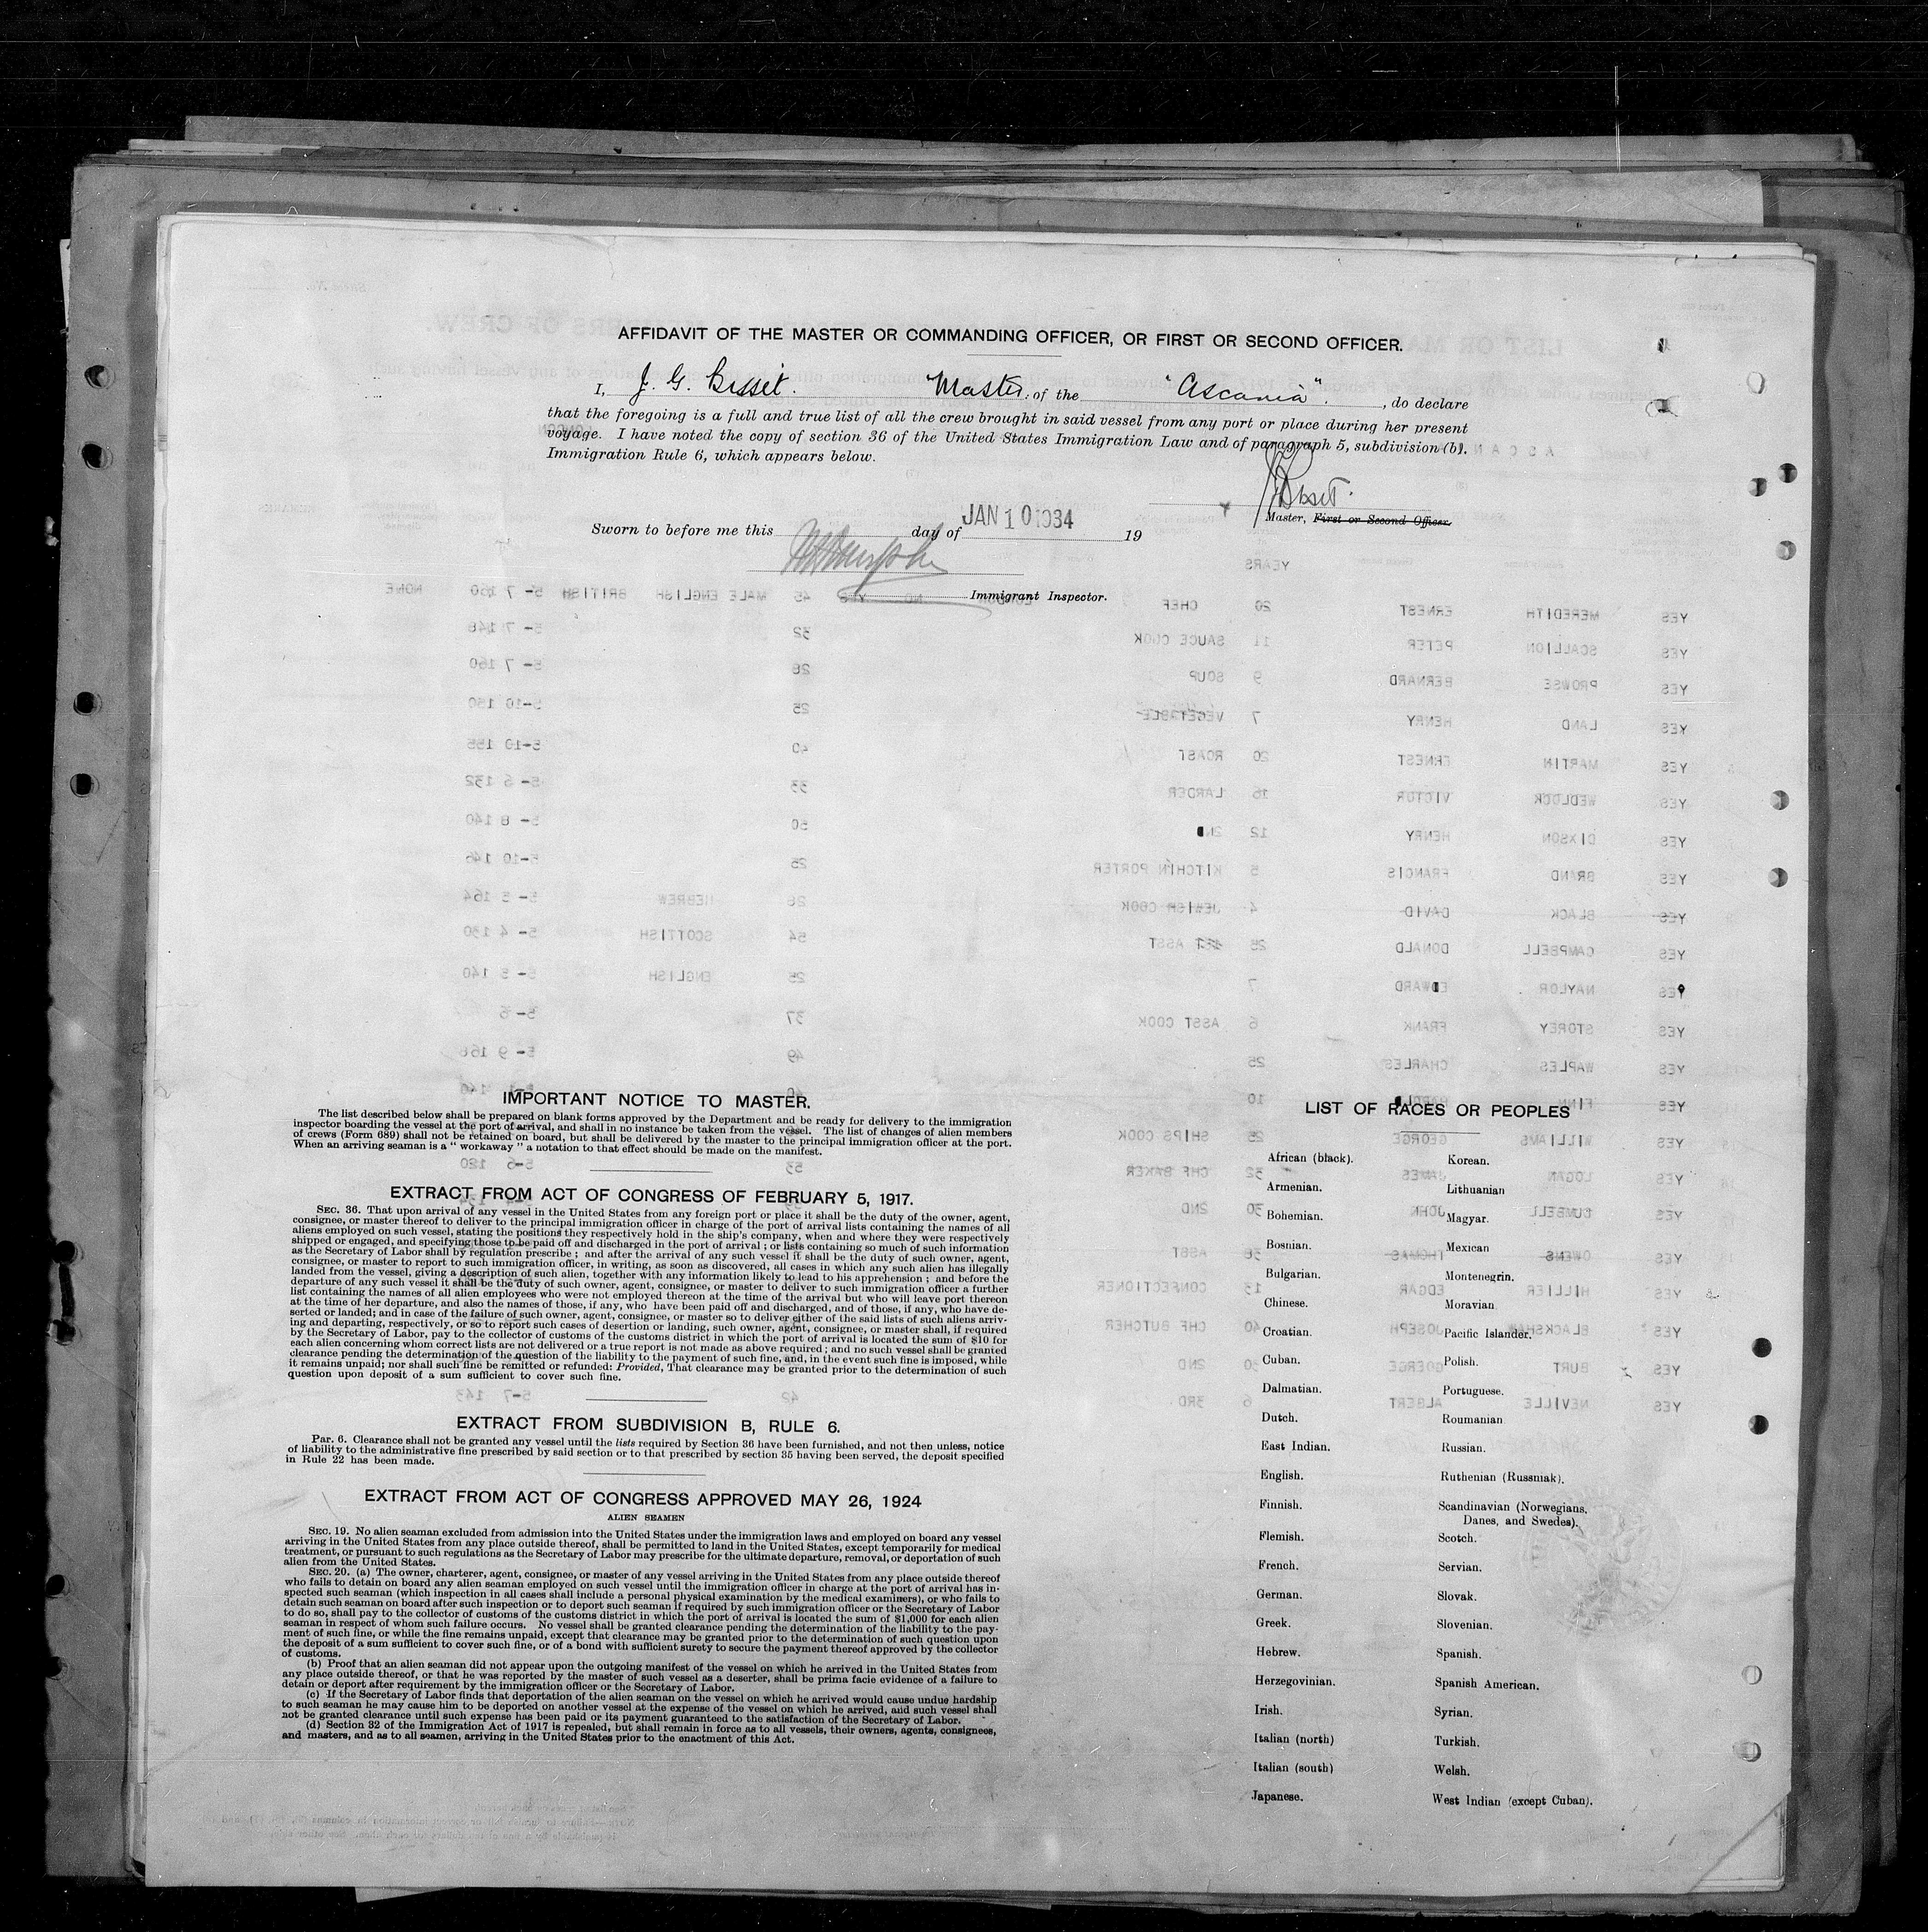 AFFIDAVIT OF THE MASTER OR COMMANDING OFFICER, OR FIRST OR SECOND OFFICER.
I, J. G. Bisset. Master. of the "Ascania". , do declare
that the foregoing is a full and true list of all the crew brought in said vessel from any port or place during her present
voyage. I have noted the copy of section 36 of the United States Immigration Law and of paragraph 5, subdivision (b).
Immigration Rule 6, which appears below.
Bisset.
Master, First or Second Officer.
Sworn to before me this day of JAN 10 1934 19
Immigrant Inspector.
IMPORTANT NOTICE TO MASTER.
The list described below shall be prepared on blank forms approved by the Department and be ready for delivery to the immigration
inspector boarding the vessel at the port of arrival, and shall in no instance be taken from the vessel. The list of changes of alien members
of crews (Form 689) shall not be retained on board, but shall be delivered by the master to the principal immigration officer at the port.
When an arriving seaman is a " workaway " a notation to that effect should be made on the manifest.
EXTRACT FROM ACT OF CONGRESS OF FEBRUARY 5, 1917.
SEC. 36. That upon arrival of any vessel in the United States from any foreign port or place it shall be the duty of the owner, agent,
consignee, or master thereof to deliver to the principal immigration officer in charge of the port of arrival lists containing the names of all
aliens employed on such vessel, stating the positions they respectively hold in the ship's company, when and where they were respectively
shipped or engaged, and specifying those to be paid off and discharged in the port of arrival ; or lists containing so much of such information
as the Secretary of Labor shall by regulation prescribe ; and after the arrival of any such vessel it shall be the duty of such owner, agent,
consignee, or master to report to such immigration officer, in writing, as soon as discovered, all cases in which any such alien has illegally
landed from the vessel, giving a description of such alien, together with any information likely to lead to his apprehension ; and before the
departure of any such vessel it shall be the duty of such owner, agent, consignee, or master to deliver to such immigration officer a further
list containing the names of all alien employees who were not employed thereon at the time of the arrival but who will leave port thereon
at the time of her departure, and also the names of those, if any, who have been paid off and discharged, and of those, if any, who have de-
serted or landed; and in case of the failure of such owner, agent, consignee, or master so to deliver either of the said lists of such aliens arriv-
ing and departing, respectively, or so to report such cases of desertion or landing, such owner, agent, consignee, or master shall, if required
by the Secretary of Labor, pay to the collector of customs of the customs district in which the port of arrival is located the sum of $10 for
each alien concerning whom correct lists are not delivered or a true report is not made as above required ; and no such vessel shall be granted
clearance pending the determination of the question of the liability to the payment of such fine, and, in the event such fine is imposed, while
it remains unpaid; nor shall such fine be remitted or refunded: Provided, That clearance may be granted prior to the determination of such
question upon deposit of a sum sufficient to cover such fine.
EXTRACT FROM SUBDIVISION B, RULE 6.
Par. 6. Clearance shall not be granted any vessel until the lists required by Section 36 have been furnished, and not then unless, notice
of liability to the administrative fine prescribed by said section or to that prescribed by section 35 having been served, the deposit specified
in Rule 22 has been made.
EXTRACT FROM ACT OF CONGRESS APPROVED MAY 26, 1924
ALIEN SEAMEN
SEC. 19. No alien seaman excluded from admission into the United States under the immigration laws and employed on board any vessel
arriving in the United States from any place outside thereof, shall be permitted to land in the United States, except temporarily for medical
treatment, or pursuant to such regulations as the Secretary of Labor may prescribe for the ultimate departure, removal, or deportation of such
alien from the United States.
SEC. 20. (a) The owner, charterer, agent, consignee, or master of any vessel arriving in the United States from any place outside thereof
who fails to detain on board any alien seaman employed on such vessel until the immigration officer in charge at the port of arrival has in-
spected such seaman (which inspection in all cases shall include a personal physical examination by the medical examiners), or who fails to
detain such seaman on board after such inspection or to deport such seaman if required by such immigration officer or the Secretary of Labor
to do so, shall pay to the collector of customs of the customs district in which the port of arrival is located the sum of $1,000 for each alien
seaman in respect of whom such failure occurs. No vessel shall be granted clearance pending the determination of the liability to the pay-
ment of such fine, or while the fine remains unpaid, except that clearance may be granted prior to the determination of such question upon
the deposit of a sum sufficient to cover such fine, or of a bond with sufficient surety to secure the payment thereof approved by the collector
of customs.
(b) Proof that an alien seaman did not appear upon the outgoing manifest of the vessel on which he arrived in the United States from
any place outside thereof, or that he was reported by the master of such vessel as a deserter, shall be prima facie evidence of a failure to
detain or deport after requirement by the immigration officer or the Secretary of Labor.
(c) If the Secretary of Labor finds that deportation of the alien seaman on the vessel on which he arrived would cause undue hardship
to such seaman he may cause him to be deported on another vessel at the expense of the vessel on which he arrived, and such vessel shall
not be granted clearance until such expense has been paid or its payment guaranteed to the satisfaction of the Secretary of Labor.
(d) Section 32 of the Immigration Act of 1917 is repealed, but shall remain in force as to all vessels, their owners, agents, consignees,
and masters, and as to all seamen, arriving in the United States prior to the enactment of this Act.
LIST OF RACES OR PEOPLES
African (black). Korean.
Armenian. Lithuanian
Bohemian. Magyar.
Bosnian. Mexican
Bulgarian. Montenegrin.
Chinese. Moravian
Croatian. Pacific Islander.
Cuban. Polish.
Dalmatian. Portuguese.
Dutch. Roumanian
East Indian. Russian.
English. Ruthenian (Russniak).
Finnish. Scandinavian (Norwegians,
Danes, and Swedes).
Flemish. Scotch.
French. Servian.
German. Slovak.
Greek. Slovenian.
Hebrew. Spanish.
Herzegovinian. Spanish American.
Irish. Syrian.
Italian (north) Turkish.
Italian (south) Welsh.
Japanese. West Indian (except Cuban).